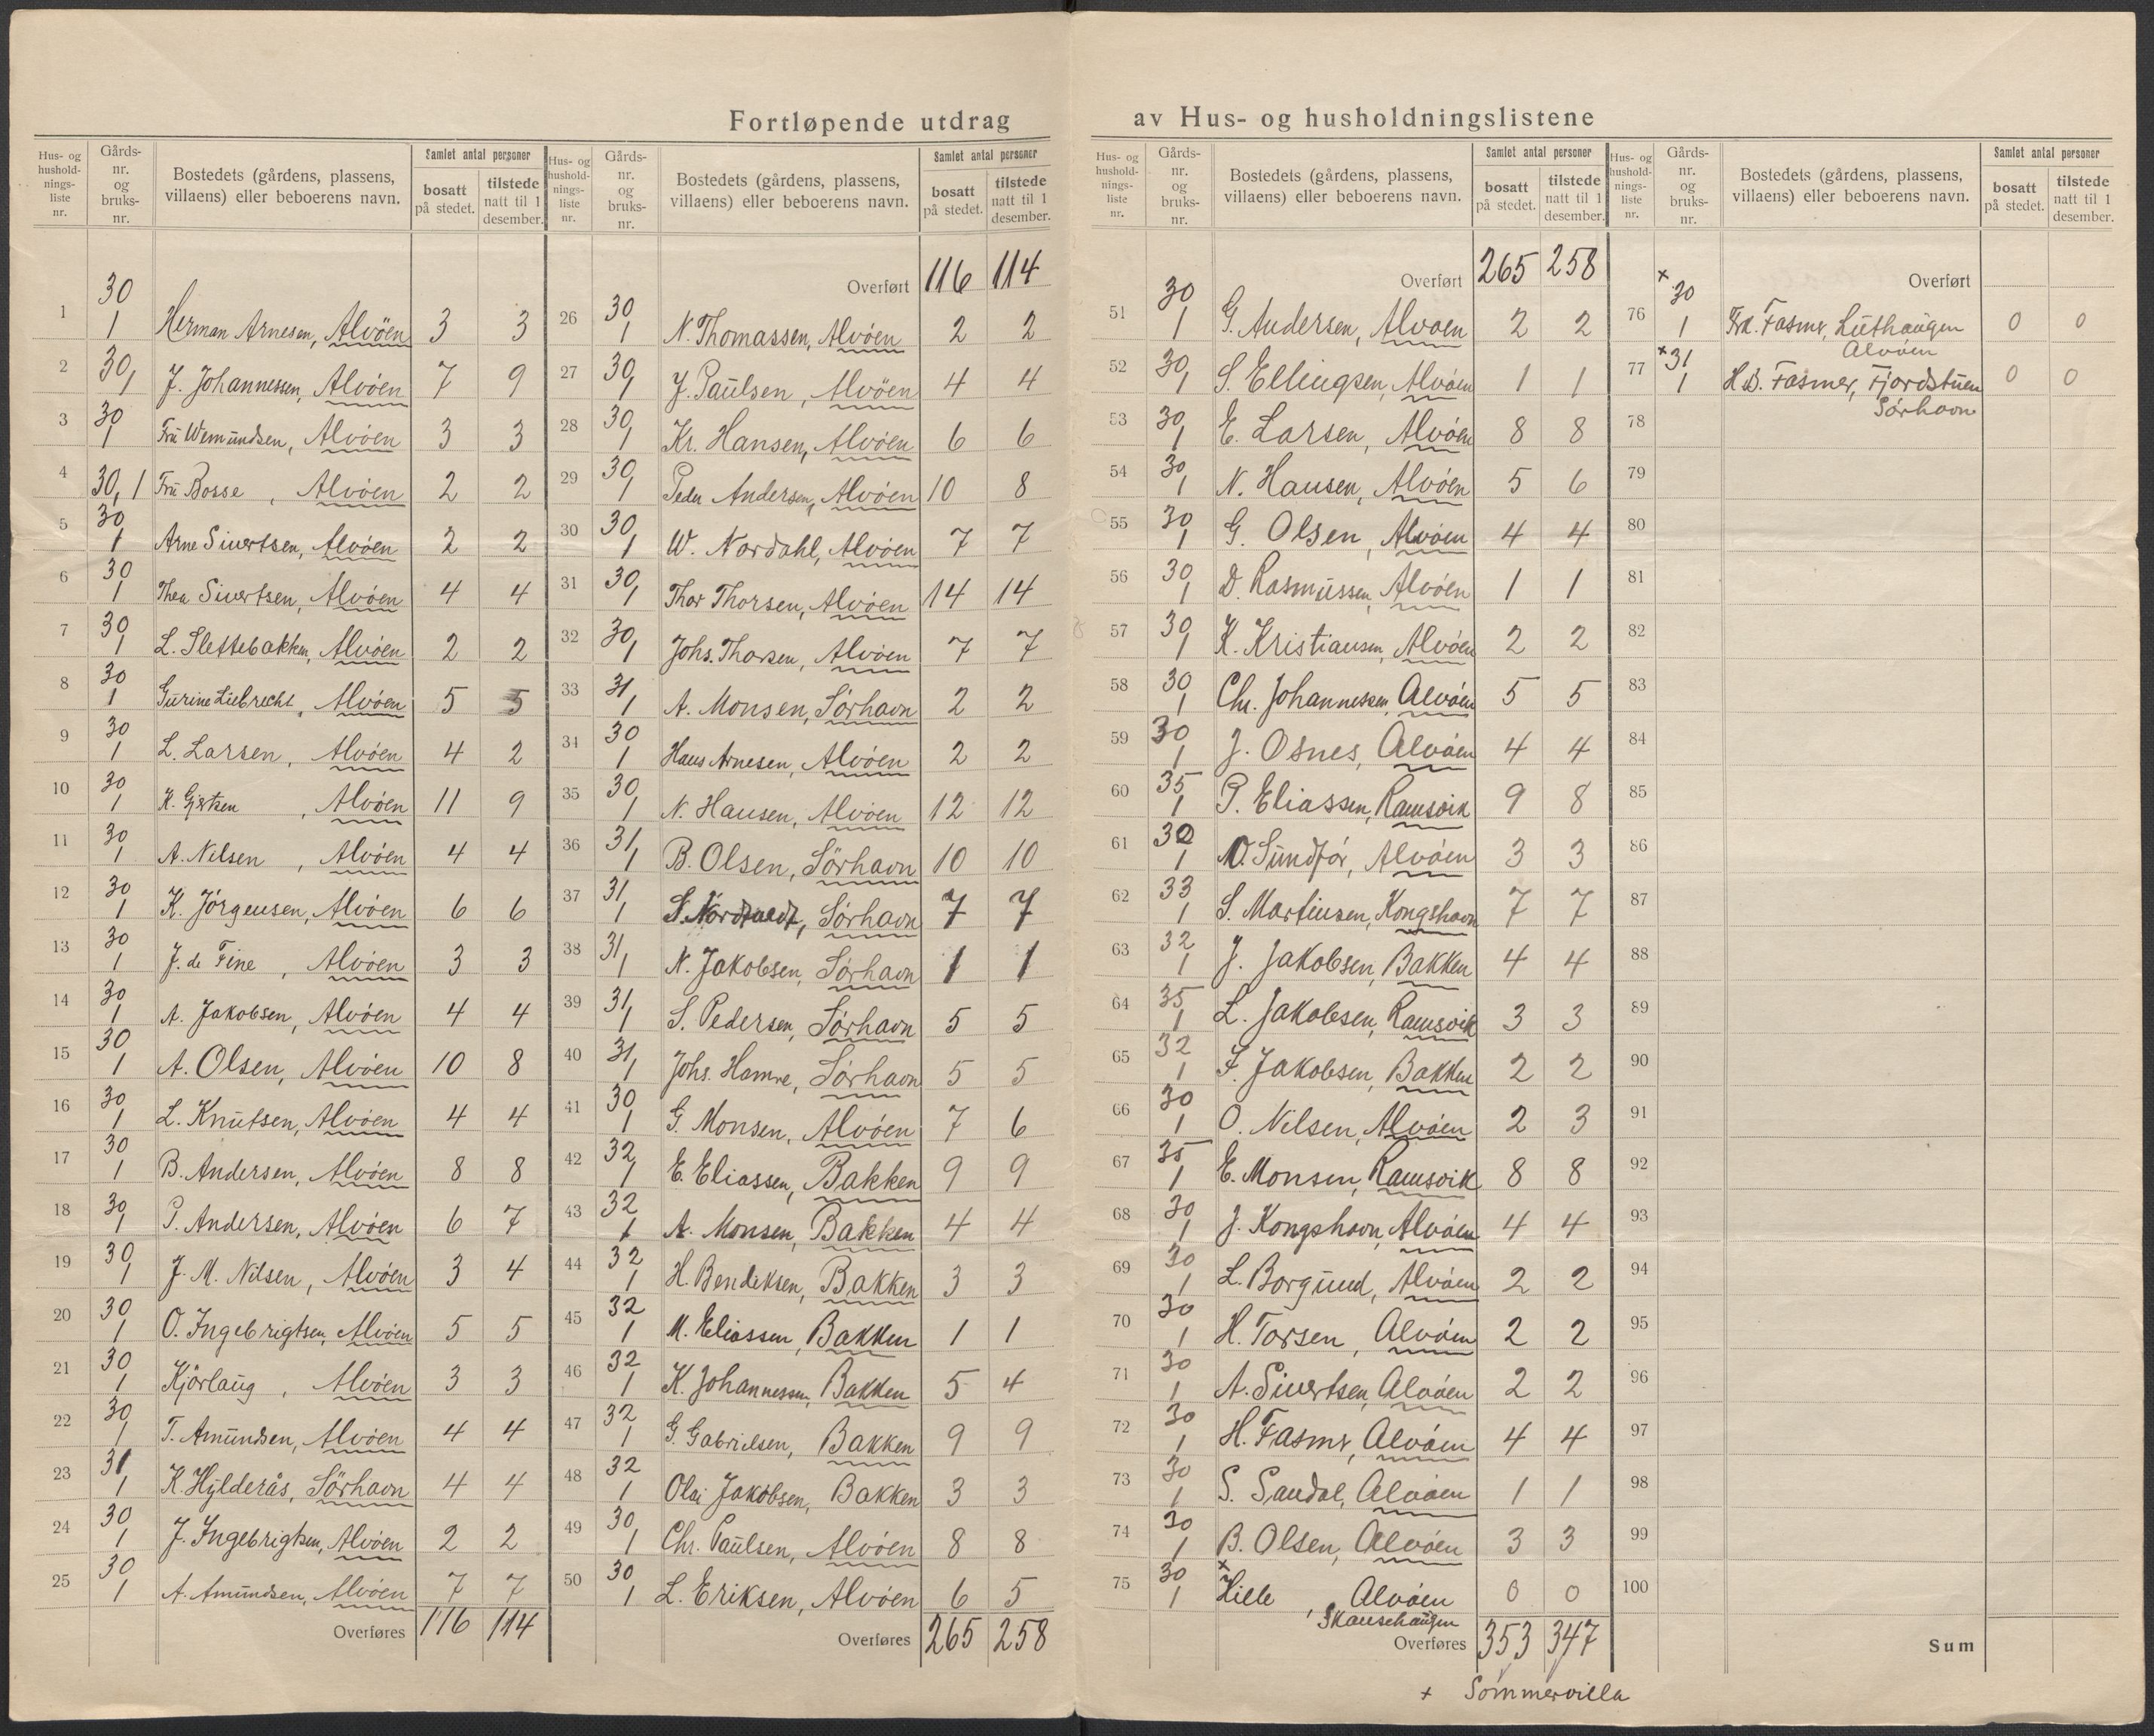 Fortløpende utdrag av Hus- og husholdningslistene
Hus- og husholdnings- liste nr. | Gårds- nr. og bruks- nr. | Bostedets (gårdens, plassens, villaens) eller beboerens navn. | Samlet antal personer | bosatt på stedet. | tilstede natt til 1 desember.
1 30 1 Herman Arnesen, Alvöen 3 3
2 30, 1 J. Johannessen, Alvöen 7 9
3 30 1 Frü Wemündsen, Alvöen 3 3
4 30, 1 Frü Bosse, Alvöen 2 2
5 30, 1 Arne Sivertsen, Alvöen 2 2
6 30 1 Thea Sivertsen, Alvöen 4 4
7 30, 1 L. Slettebakken, Alvöen 2 2
8 30 1 Gurine Liebrecht, Alvöen 5 5
9 30 1 L. Larsen, Alvöen 4 2
10 30 1 K. Gjertsen, Alvöen 11 9
11 30, 1 A. Nilsen, Alvöen 4 4
12 30 1 K. Jörgensen, Alvöen 6 6
13 30 1 J. de Fine, Alvöen 3 3
14 30 1 A. Jakobsen, Alvöen 4 4
15 30 1 A. Olsen, Alvöen 10 8
16 30, 1 L. Knütsen, Alvöen 4 4
17 30 1 B. Andersen, Alvöen 8 8
18 30, 1 P. Andersen, Alvöen 6 7
19 30, 1 J. M. Nilsen, Alvöen 3 4
20 30 1 O. Ingebrigtsen, Alvöen 5 5
21 30 1 Kjörlaüg, Alvöen 3 3
22 30, 1 T. Amündsen, Alvöen 4 4
23 31 1 K. Hylderås, Sörhavn 4 4
24 30 1 J. Ingebrigtsen, Alvöen 2 2
25 30 1 A. Amündsen, Alvöen 7 7
Overføres 116 114
Hus- og husholdnings- liste nr. | Gårds- nr. og bruks- nr. | Bostedets (gårdens, plassens, villaens) eller beboerens navn. | Samlet antal personer | bosatt på stedet. | tilstede natt til 1 desember.
Overført 116 114
26 30 1 N. Thomassen, Alvöen 2 2
27 30, 1 J. Paülsen, Alvöen 4 4
28 30, 1 Kr. Hansen, Alvöen 6 6
29 30, 1 Peder Andersen, Alvöen 10 8
30 30, 1 W. Nordahl, Alvöen 7 7
31 30, 1 Thor Thorsen, Alvöen 14 14
32 30, 1 Johs. Thorsen, Alvöen 7 7
33 31, 1 A. Monsen, Sörhavn 2 2
34 30 1 Hans Arnesen, Alvöen 2 2
35 30, 1 N. Hansen, Alvöen 12 12
36 31, 1 B. Olsen, Sörhavn 10 10
37 31, 1 S. Sörhavn 7 7
38 31, 1 N. Jakobsen, Sörhavn 1 1
39 31, 1 S. Pedersen, Sörhavn 5 5
40 31, 1 Johs. Hamre, Sörhavn 5 5
41 30 1 G. Monsen, Alvöen 7 6
42 32, 1 E. Eliassen, Bakken 9 9
43 32 1 A. Monsen, Bakken 4 4
44 32 1 H. Bendiksen, Bakken 3 3
45 32 1 M. Eliassen, Bakken 1 1
46 32 1 K. Johannessen, Bakken 5 4
47 32 1 G. Gabrielsen, Bakken 9 9
48 32 1 Olai Jakobsen, Bakken 3 3
49 30, 1 Chr. Paülsen, Alvöen 8 8
50 30 1 L. Eriksen, Alvöen 6 5
Overføres 265 258
Hus- og husholdnings- liste nr. | Gårds- nr. og bruks- nr. | Bostedets (gårdens, plassens, villaens) eller beboerens navn. | Samlet antal personer | bosatt på stedet. | tilstede natt til 1 desember.
Overført 265 258
51 30 1 G. Andersen, Alvöen 2 2
52 30, 1 S. Ellingsen, Alvöen 1 1
53 30, 1 E. Larsen, Alvöen 8 8
54 30, 1 N. Hansen, Alvöen 5 6
55 30, 1 G. Olsen, Alvöen 4 4
56 30, 1 D. Rasmüssen, Alvöen 1 1
57 30, 1 K. Kristiansen, Alvöen 2 2
58 30 1 Chr. Johannessen, Alvöen 5 5
59 30 1 J. Osnes, Alvöen 4 4
60 35 1 P. Eliassen, Ramsvik 9 8
61 30 1 O. Sündför, Alvöen 3 3
62 33 1 S. Martinsen, Kongshavn 7 7
63 32 1 J. Jakobsen, Bakken 4 4
64 35 1 L. Jakobsen, Ramsvik 3 3
65 32 1 F. Jakobsen, Bakken 2 2
66 30 1 O. Nilsen, Alvöen 2 3
67 35 1 E. Monsen, Ramsvik 8 8
68 30 1 J. Kongshavn, Alvöen 4 4
69 30 1 L. Borgünd, Alvöen 2 2
70 30 1 H. Torsen, Alvöen 2 2
71 30 1 A. Sivertsen, Alvöen 2 2
72 30 1 H. Fasmr, Alvöen 4 4
73 30 1 S. Sandal, Alvöen 1 1
74 30 1 B. Olsen, Alvöen 3 3
75 30 1 + Hille, Alvöen 0 0
Skansehaügen
Overføres 353 347
+ Sommervilla
Hus- og husholdnings- liste nr. | Gårds- nr. og bruks- nr. | Bostedets (gårdens, plassens, villaens) eller beboerens navn. | Samlet antal personer | bosatt på stedet. | tilstede natt til 1 desember.
Overført
76 + 30 1 Fasmr, Lüthaügen 0 0
Alvöen
77 + 31 1 H.B. Fasmer, Fjordstüen 0 0
Sörhavn
78
79
80
81
82
83
84
85
86
87
88
89
90
91
92
93
94
95
96
97
98
99
100
Sum